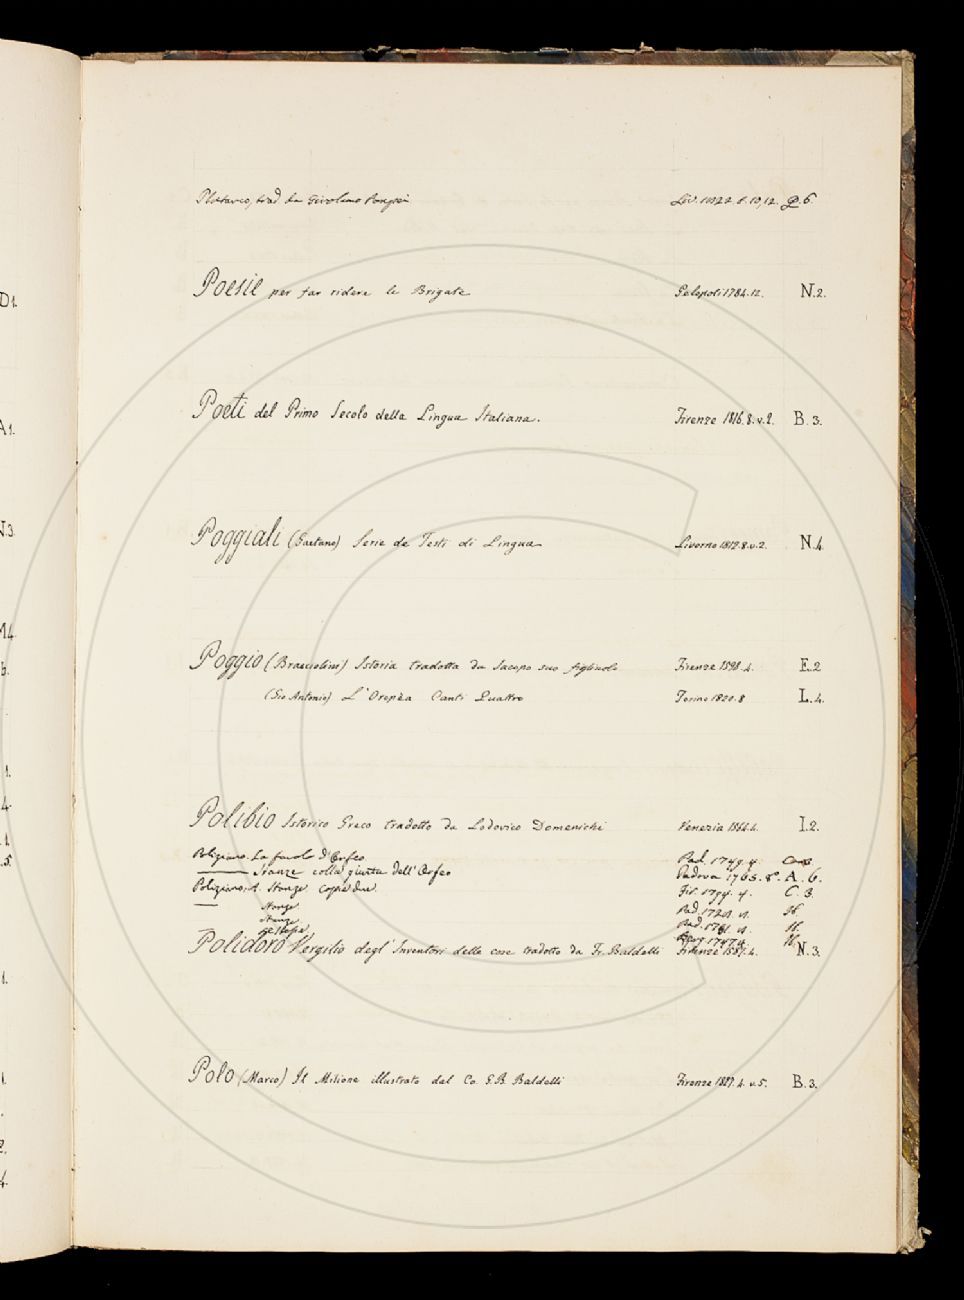 Plutarco, trad. da Girolamo Pompei Liv. 1822. 8. 10, 12. P. 6.
Poesie per far ridere le Brigate Gelopoli 1784. 12. N.2.
D1.
Poeti del Primo Secolo della Lingua Italiana. Firenze 1816. 8. v. 2. B. 3.
A1.
Poggiali (Gaetano) Serie de Testi di Lingua Livorno 1812. 8. v. 2. N.4.
Poggio (Bracciolino) Istoria tradotta da Jacopo suo figliuolo Firenze 1598. 4. E.2
(Gio Antonio) L' Canti Quattro Torino 1820. 8 L.4.
Polibio Istorico Greco tradotto da Lodovico Domenichi Venezia 1564. 4. I.2.
Poliziano. La favola d'Orfeo Pad. 1749. 4.
Stanze colla giunta dell'Orfeo Padova 1765. 8º. A. 6.
Poliziano. A. Stanze copie due. Fir. 1794. 4. C. 3.
Stanze Pad. 1728. H.
Stanze Pad. 1751. H.
1747. H.
Polidoro Vergilio degl' Inventori delle cose tradotto da Fr. Baldelli Firenze 1587. 4. N. 3.
Polo (Marco) Il Milione illustrato dal Co. G.B. Baldelli Firenze 1827. 4. v. 5. B. 3.